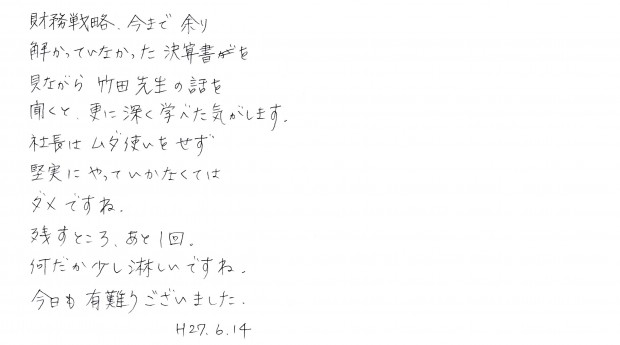 財務戦略、今まで 余り
解かっていなかった 決算書を
見ながら 竹田 先生の話を
聞くと、更に 深く 学べた気がします。
社長は ムダ使いを せず
堅実に やっていかなくては
ダメですね。
残すところ、あと1回。
何だか少し淋しいですね。
今日も 有難うございました。
H27.6.14